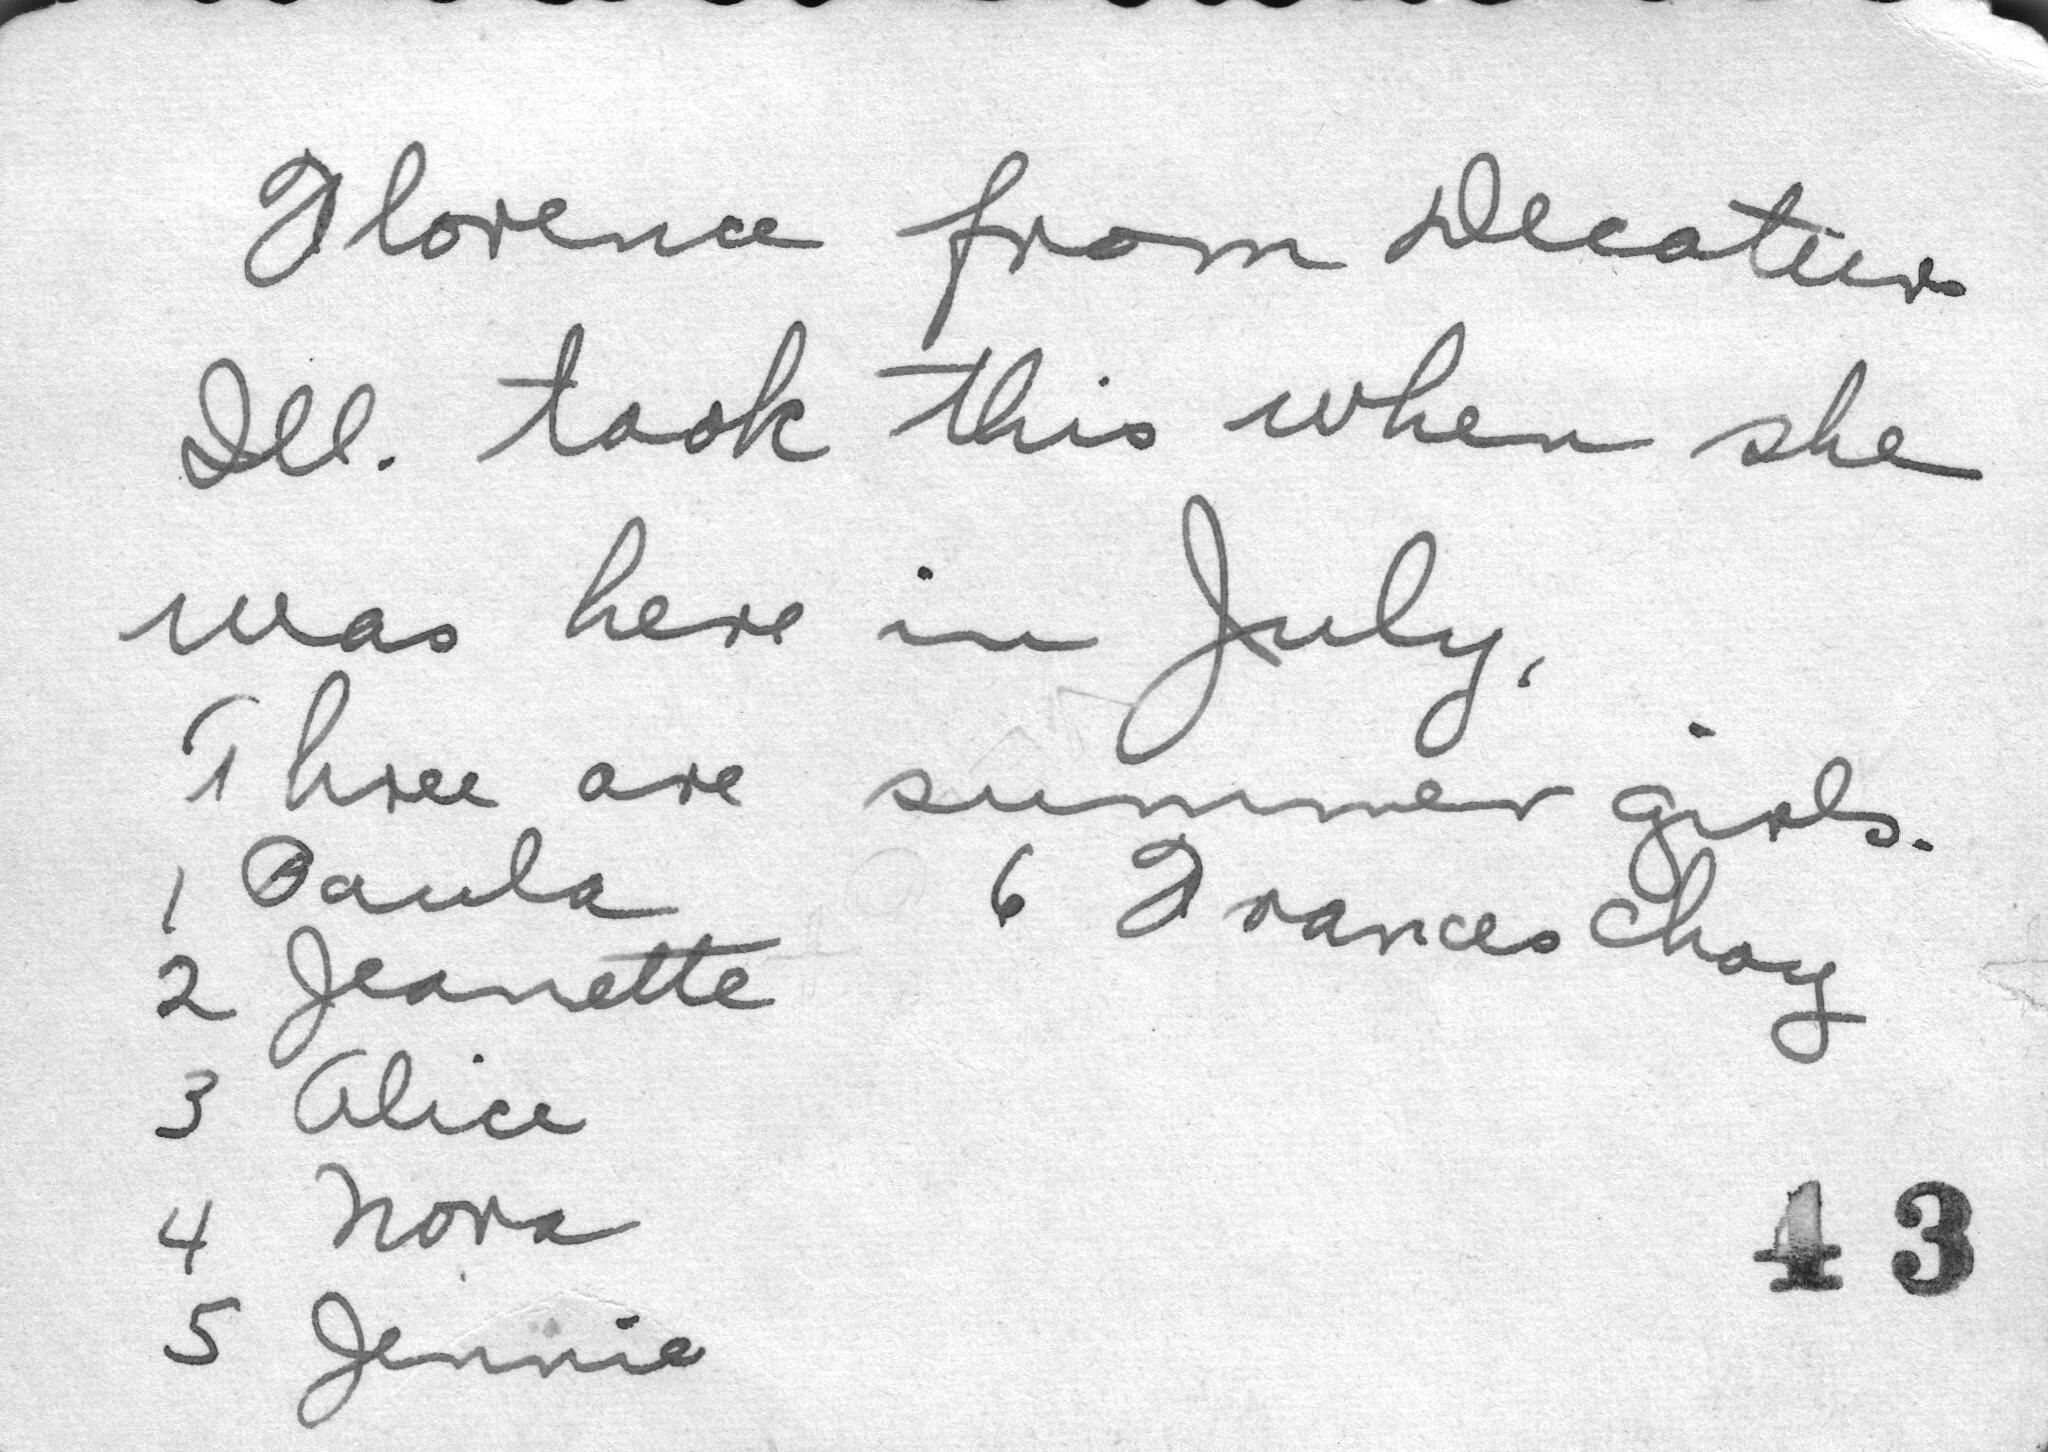 Florence from Decatur
Ill. took this when she
was here in July.
Three are summer girls.
1 Paula
2 Jeanette
3 Alice
4 Nora
5 Jennie
6 Frances Choy
43